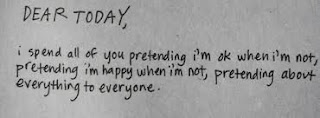 DEAR TODAY,
i spend all of you pretending i'm ok when i'm not,
pretending i'm happy when i'm not, pretending about
everything to everyone.